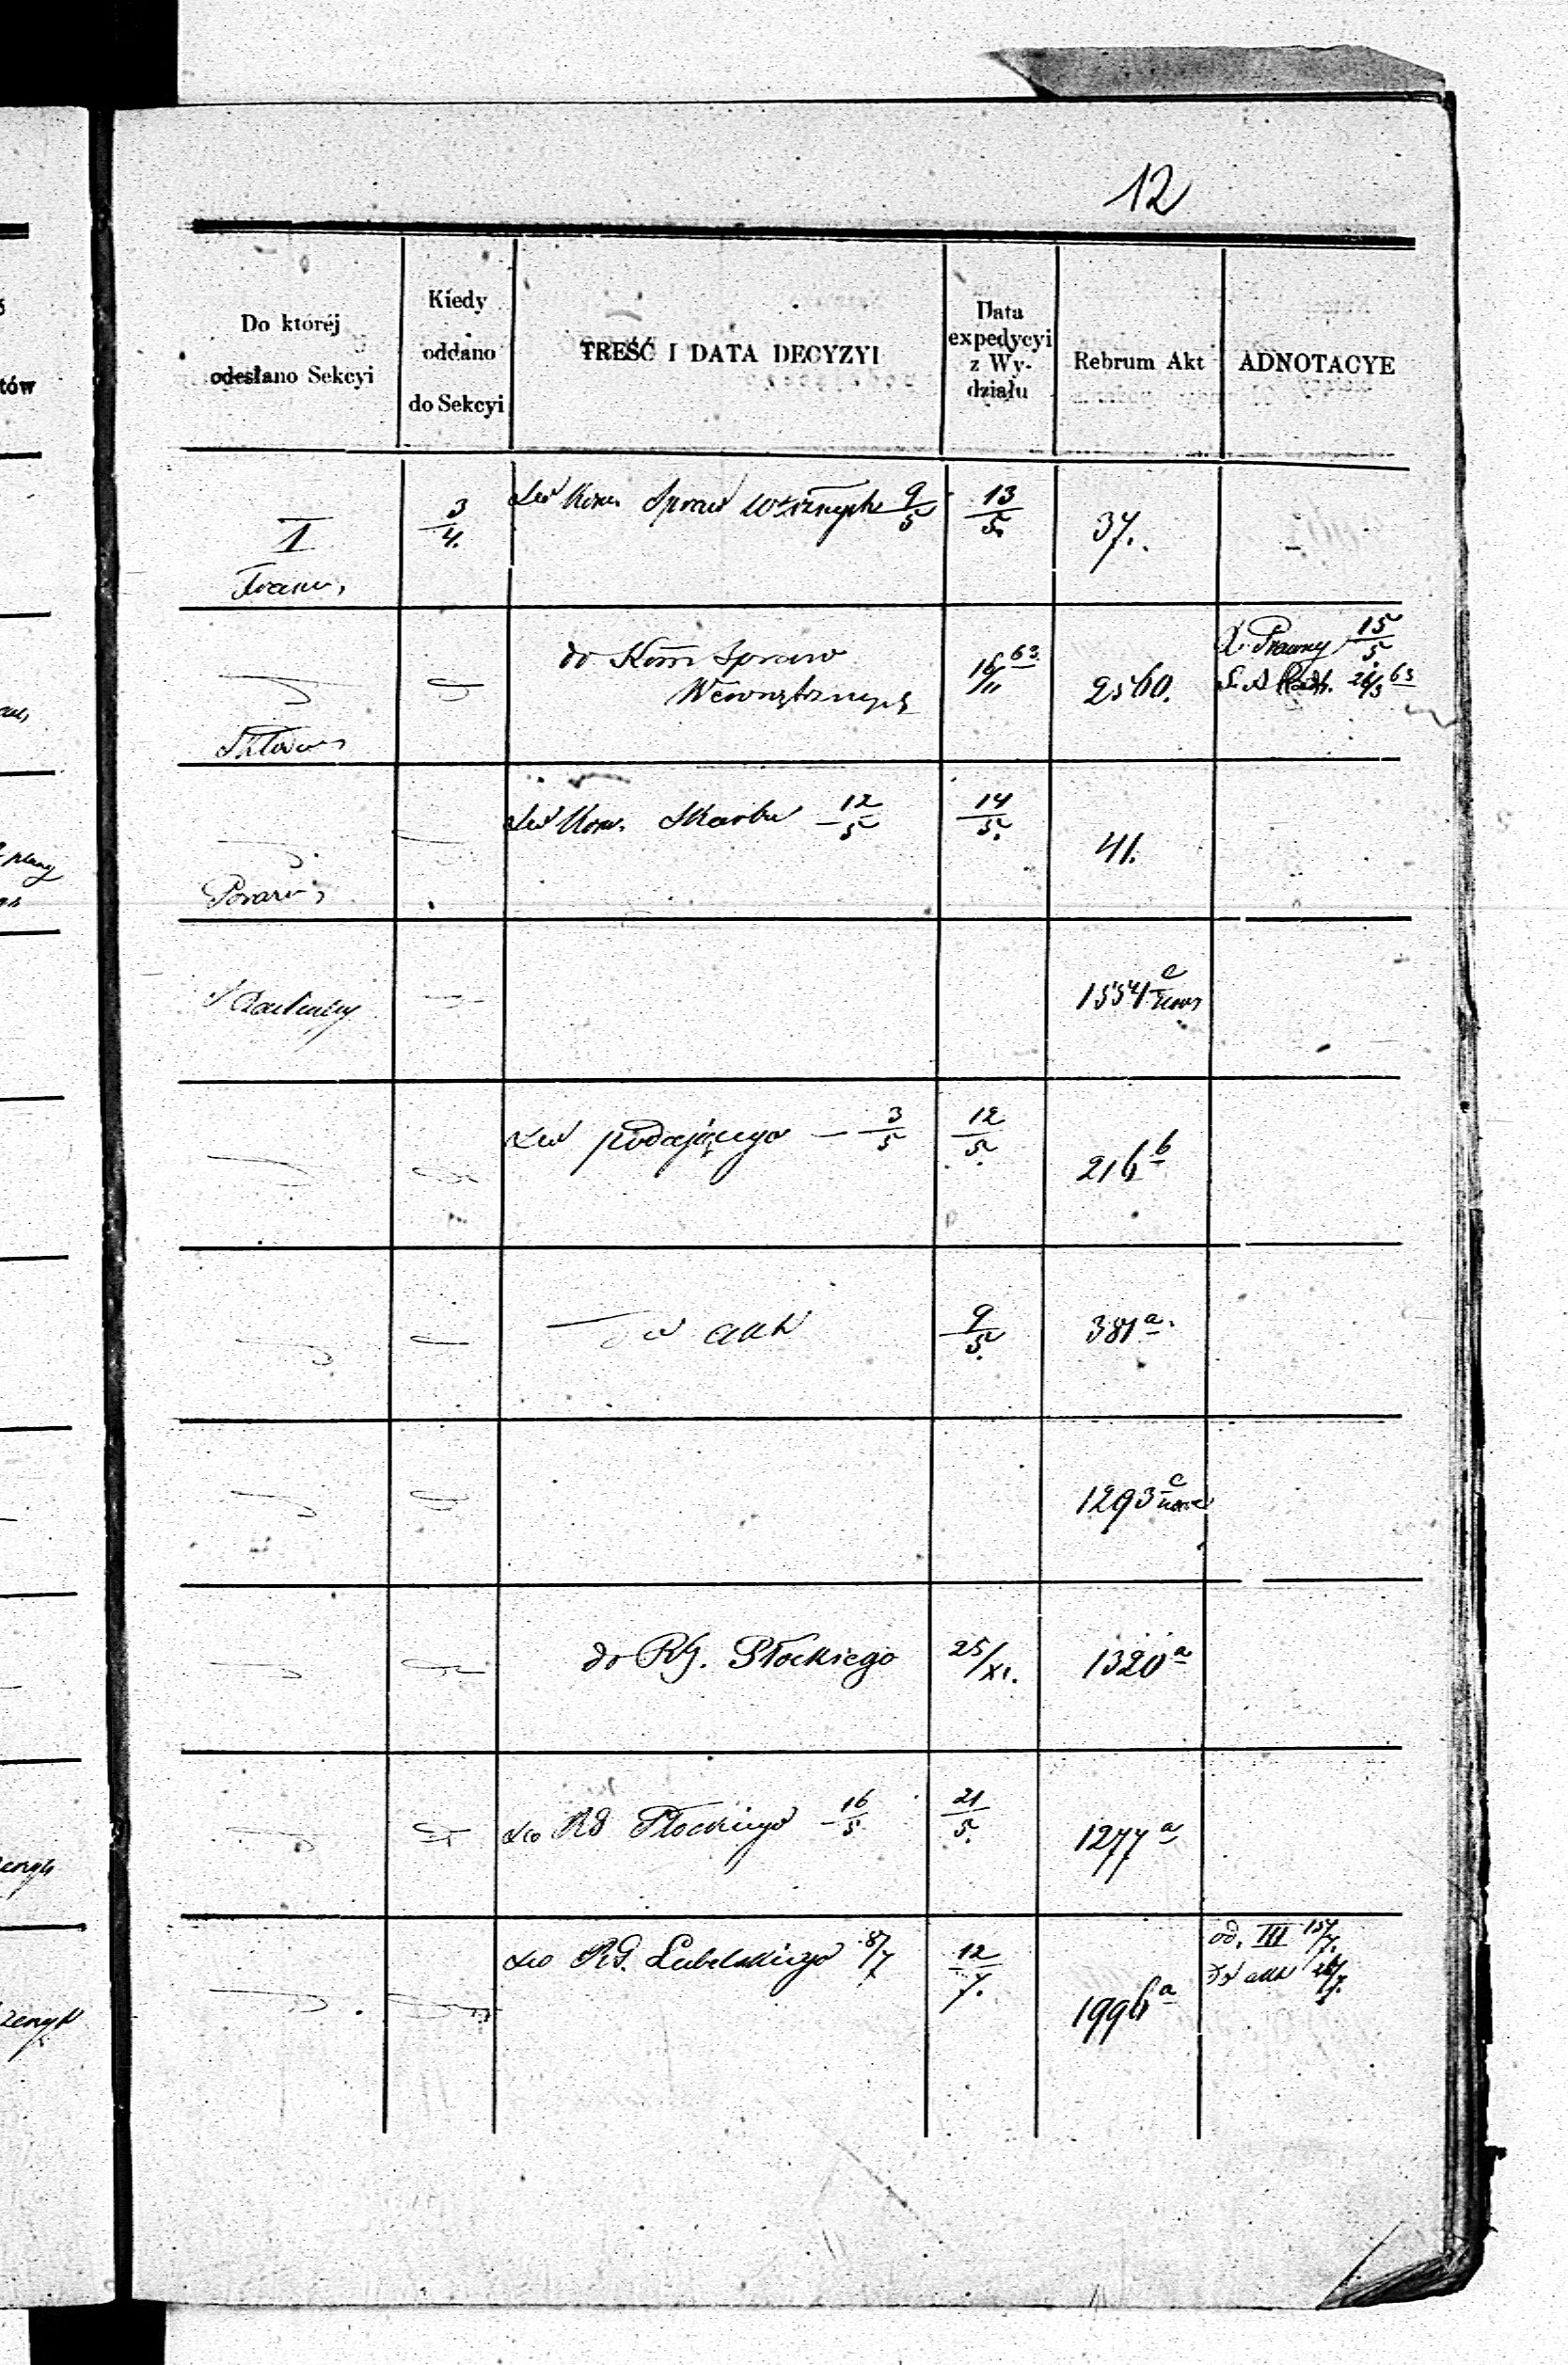 12
Do któréj
odesłano Sekcyi
Kiedy
oddano
do Sekcyi
TREŚĆ I DATA DECYZYI
Data
expedycyi
z Wy-
działu
Rebrum Akt
ADNOTACYE
I
3/4.
do Kom. Spraw 9/5
13/5.
37.
do Kom Spraw
Wewnętrznych
16/11 63
2560.
X. Prawny 15/5
26/3 63
do Kom. Skarbu 12/5
14/5.
41.
1554 c
do podającego — 3/5
12/5.
216 b
do akt
9/5.
381 a.
1293 c
do RG. Płockiego
25/XI.
1320 a
do RG Płockiego 16/5
21/5.
1277 a
do RG. Lubelskiego 8/7
12/7.
1996 a
od. III 15/7.
do akt 26/7.